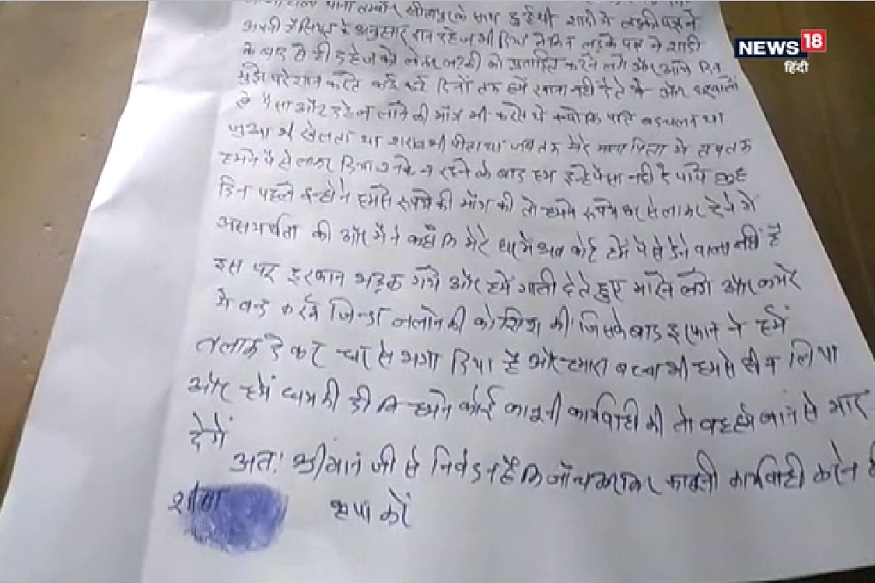 थाना तम्बौर सीतापुर के साथ हुई थी शादी में लड़की पक्ष ने
अपनी हैसियत के अनुसार दान दहेज भी दिया लेकिन लड़के पक्ष ने शादी
के बाद से ही दहेज को लेकर लड़की को प्रताड़ित करने लगे और आये दिन
मुझे परेशान करते कई कई दिनों तक हमें खाना नहीं देते थे और घरवालों
से पैसा और दहेज लाने की माँग भी करते थे क्योंकि पति बदचलन था
जुआ भी खेलता था शराब भी पीता था जब तक मेरे माता पिता थे तब तक
हमने पैसे लाकर दिया उनके न रहने के बाद हम इन्हें पैसा नहीं दे पाये कुछ
दिन पहले इन्होंने हमसे रूपये की माँग की तो हमने रूपये घर से लाकर देने में
असमर्थता की और मैंने कहा कि मेरे घर में अब कोई हमें पैसे देने वाला नहीं है
इस पर इरफान भड़क गये और हमें गाली देते हुए मारने लगे और कमरे
में बन्द करके जिन्दा जलाने की कोशिश की जिसके बाद इरफान ने हमें
तलाक देकर घर से भगा दिया है और हमारा बच्चा भी हमसे छीन लिया
और हमें धमकी दी कि हमने कोई कानूनी कार्यवाही की तो वह हमें जान से मार
देगें
अतः श्रीमान जी से निवेदन है कि जाँच कराकर कानूनी कार्यवाही करने की
कृपा करें
NEWS 18
हिंदी